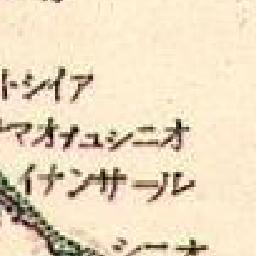 トシイア
マオナュシニオ
イナンサール
シニオ